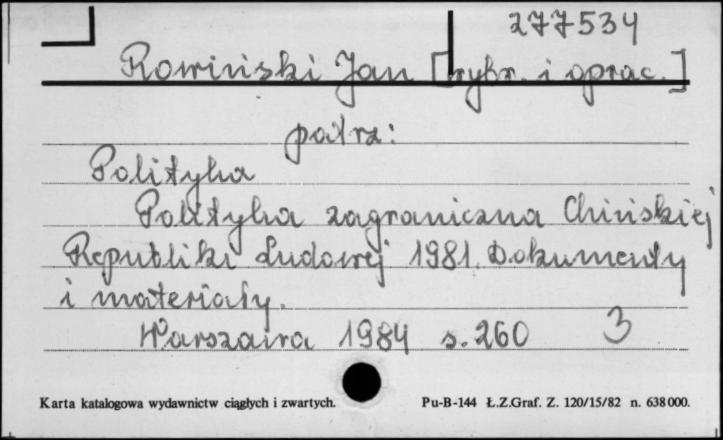 277534
Rowiński Jan [wybr. i oprac.]
patrz:
Polityka
Polityka zagraniczna Chińskiej
Republiki Ludowej 1981. Dokumenty
i materiały.
Warszawa 1984 s. 260 3
Karta katalogowa wydawnictw ciągłych i zwartych. Pu-B-144 Ł.Z.Graf. Z. 120/15/82 n. 638000.